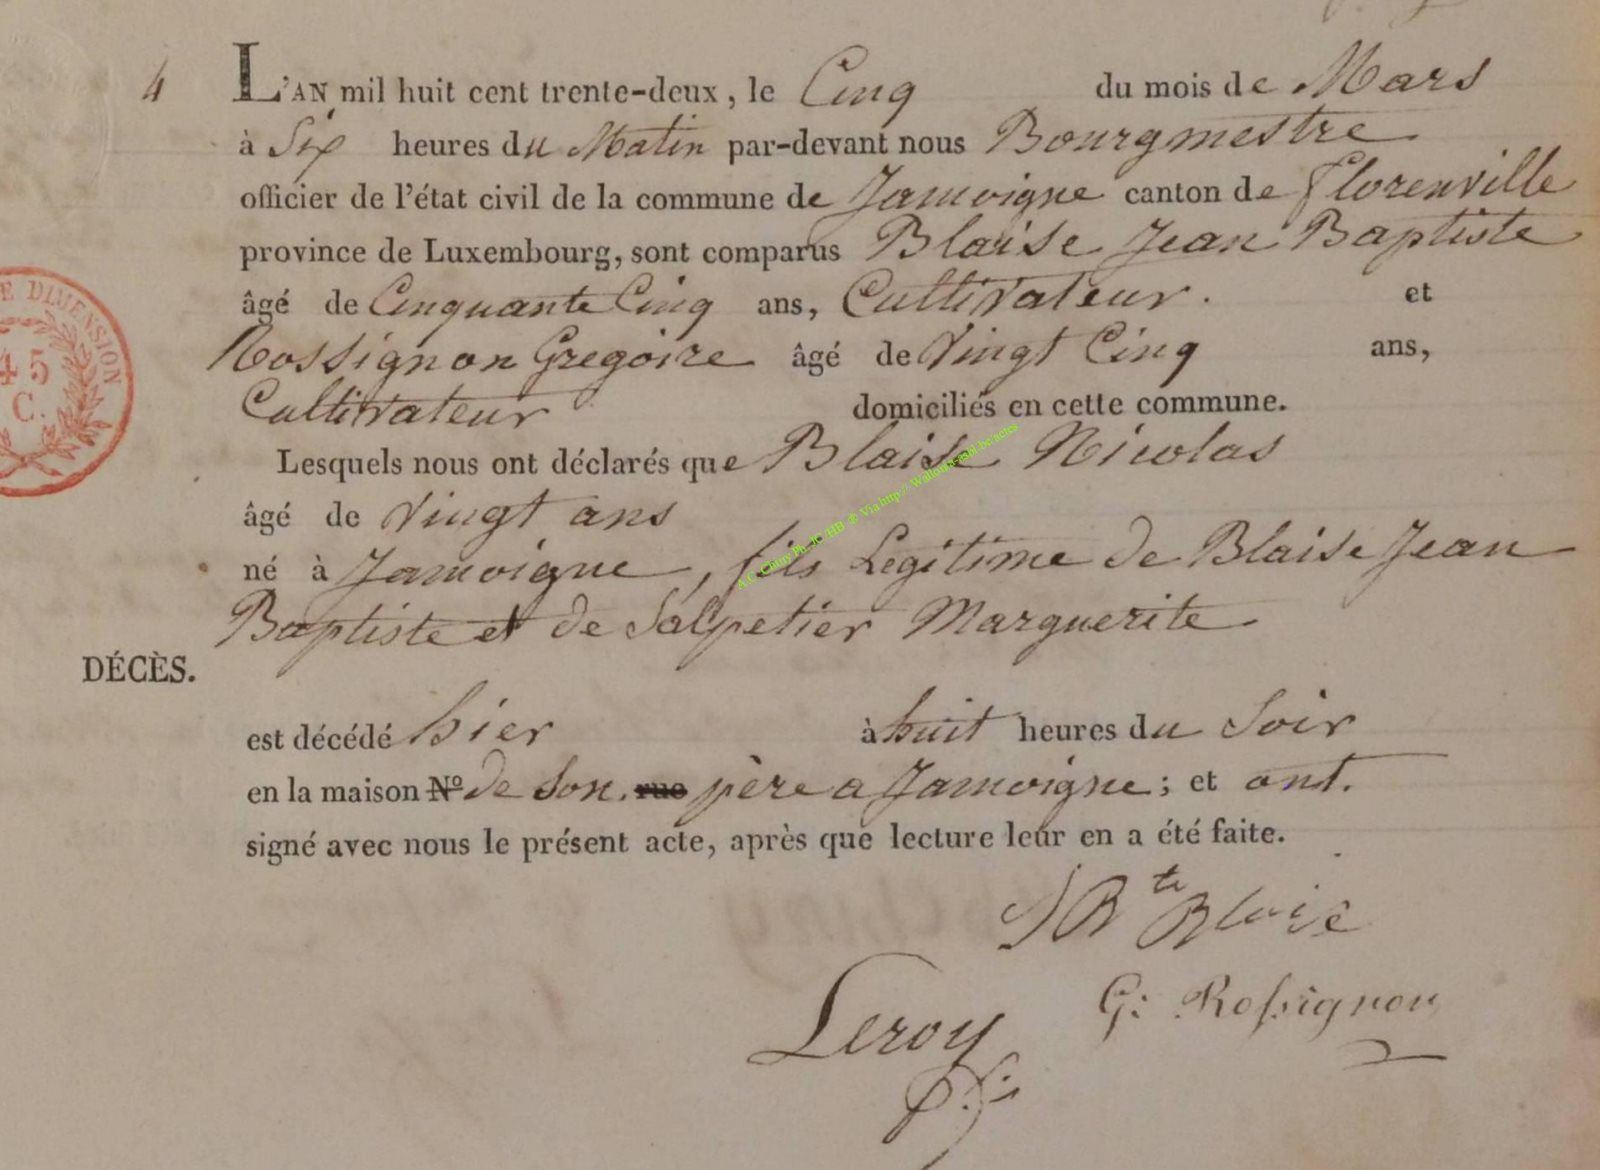 4 L'AN mil huit cent trente-deux, le Cinq du mois de Mars
à Six heures du Matin par-devant nous Bourgmestre
officier de l'état civil de la commune de Jamoigne canton de Florenville
province de Luxembourg, sont comparus Blaise Jean Baptiste
âgé de Cinquante Cinq ans, Cultivateur. et
Rossignon Gregoire âgé de Vingt Cinq ans,
Cultivateur domiciliés en cette commune.
Lesquels nous ont déclarés que Blaise Nicolas
âgé de Vingt ans
né à Jamoigne, fils Legitime de Blaise Jean
Baptiste et de Salpetier Marguerite
DÉCÈS.
est décédé hier à huit heures du Soir
en la maison N° de Son rue père a Jamoigne; et ont.
signé avec nous le présent acte, après que lecture leur en a été faite.
JBte Blaise
G: Rossignon
Leroy
E DIMENSION
45
C.
A.C. Chiny Ph. JC /HB ® Via http://Wallonia-asbl.be/actes